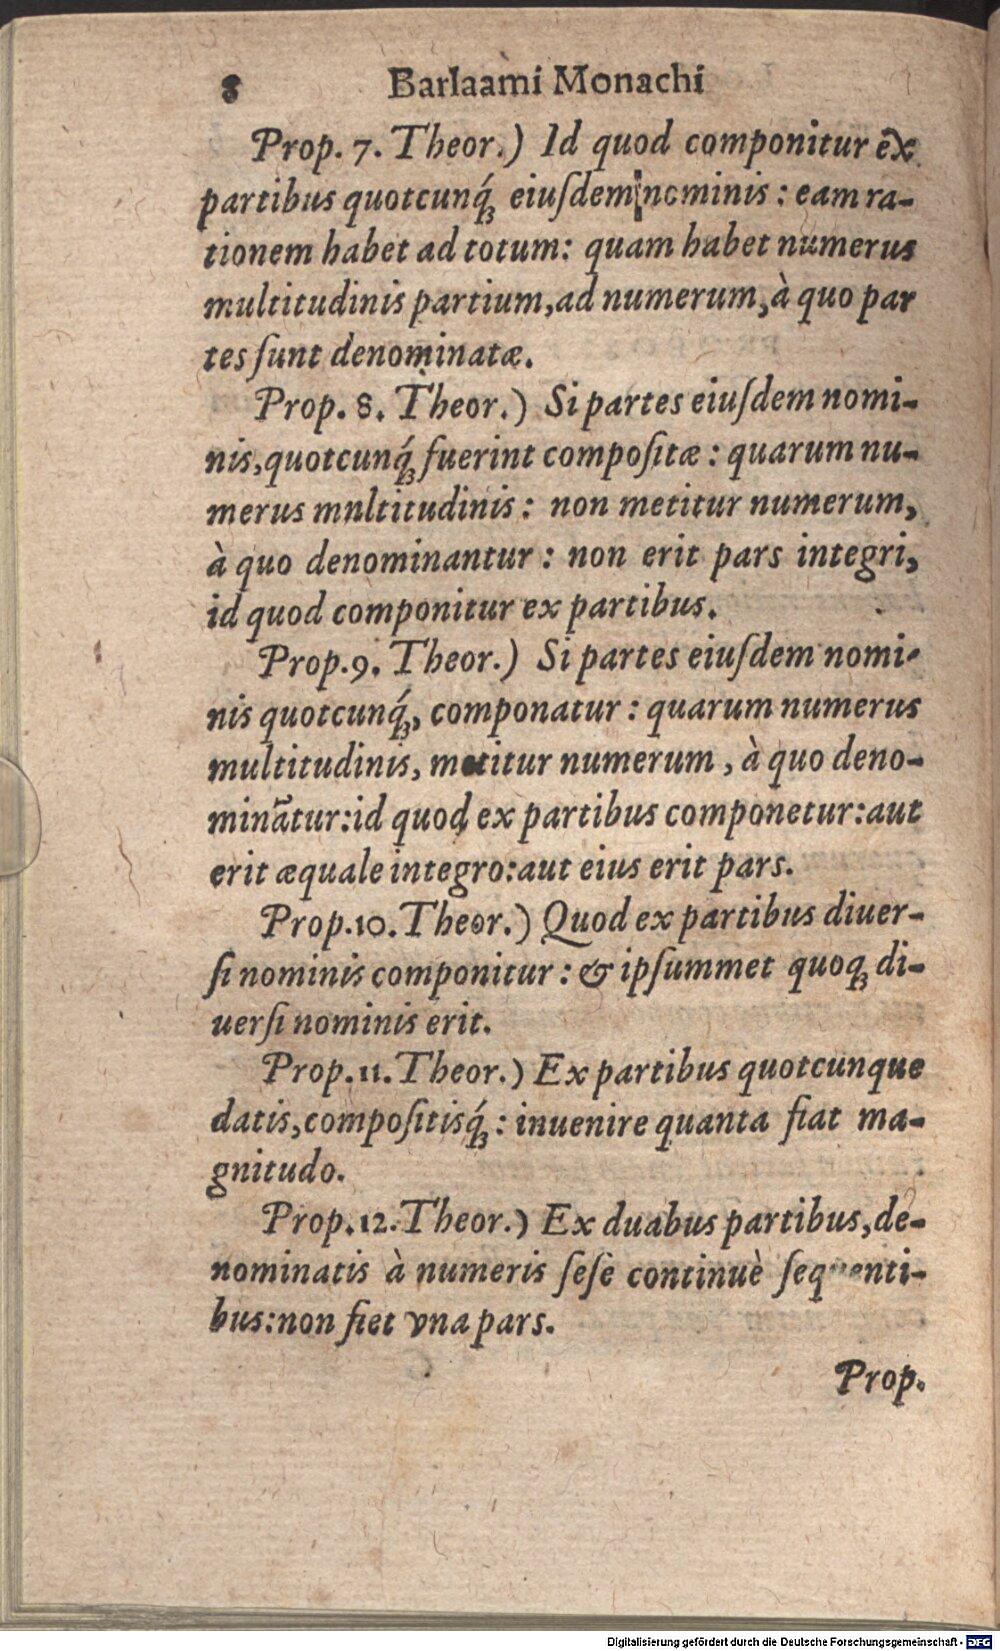 8 Barlaami Monachi
Prop. 7. Theor.) Id quod componitur ex
partibus quotcunq́ꝫ eiuſdem nominis : eam ra-
tionem habet ad totum: quam habet numerus
multitudinis partium, ad numerum, à quo par
tes ſunt denominatæ.
Prop. 8. Theor.) Si partes eiuſdem nomi-
nis, quotcunq́ꝫ fuerint compoſitæ : quarum nu-
merus mnltitudinis : non metitur numerum,
à quo denominantur : non erit pars integri,
id quod componitur ex partibus.
Prop. 9. Theor.) Si partes eiuſdem nomi-
nis quotcunq́ꝫ, componatur : quarum numerus
multitudinis, metitur numerum, à quo deno-
minãtur: id quod ex partibus componetur: aut
erit æquale integro: aut eius erit pars.
Prop. 10. Theor.) Quod ex partibus diuer-
ſi nominis componitur : & ipſummet quoqꝫ di-
uerſi nominis erit.
Prop. 11. Theor.) Ex partibus quotcunque
datis, compoſitisq́ꝫ : inuenire quanta fiat ma-
gnitudo.
Prop. 12. Theor.) Ex duabus partibus, de-
nominatis à numeris ſeſè continuè ſequenti-
bus: non fiet vna pars.
Prop.
Digitalisierung gefördert durch die Deutsche Forschungsgemeinschaft - DFG